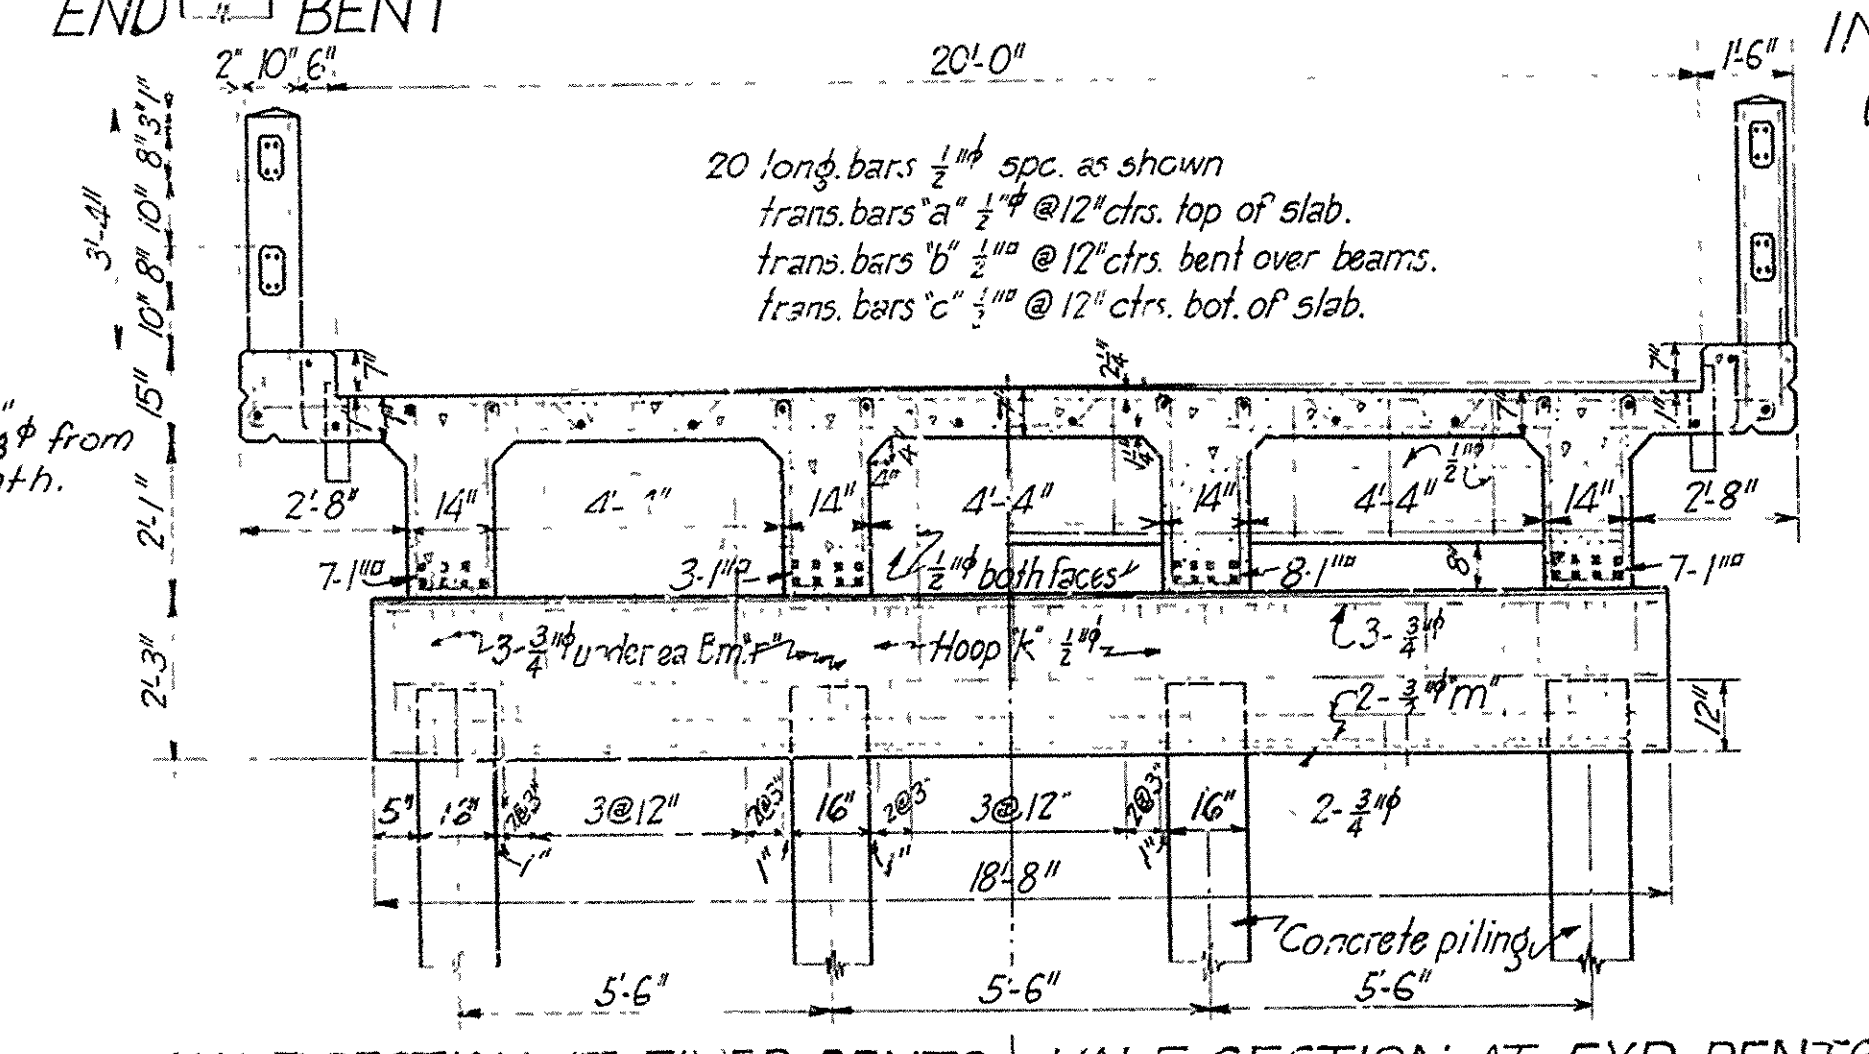 END BENT
2" 10" 6"
20'-0"
1'-6"
3'-4"
1"
3"
8"
10"
8"
10"
15"
2'-1"
2'-3"
20 long. bars ½"ϕ spc. as shown
trans. bars "a" ½"ϕ @ 12" ctrs. top of slab.
trans. bars "b" ½"▫ @ 12" ctrs. bent over beams.
trans. bars "c" ½"▫ @ 12" ctrs. bot. of slab.
ϕ from
7"
7"
2¼"
7"
7"
7"
1"
4"
4"
½"ϕ
2'-8" 14" 14" 4'-4" 14" 4'-4" 14" 2'-8"
7-1"▫
3-1"▫
½"ϕ both faces
8-1"▫
8"
7-1"▫
3-¾"ϕ under ea Bm. "r"
Hoop "k" ½"ϕ
3-¾"ϕ
"m"
12"
5" 2@3" 3@12" 2@3" 16" 2@3" 3@12" 2@3" 16"
1" 1" 1" 1"
2-¾"ϕ
18'-8"
Concrete piling
5'-6" 5'-6" 5'-6"